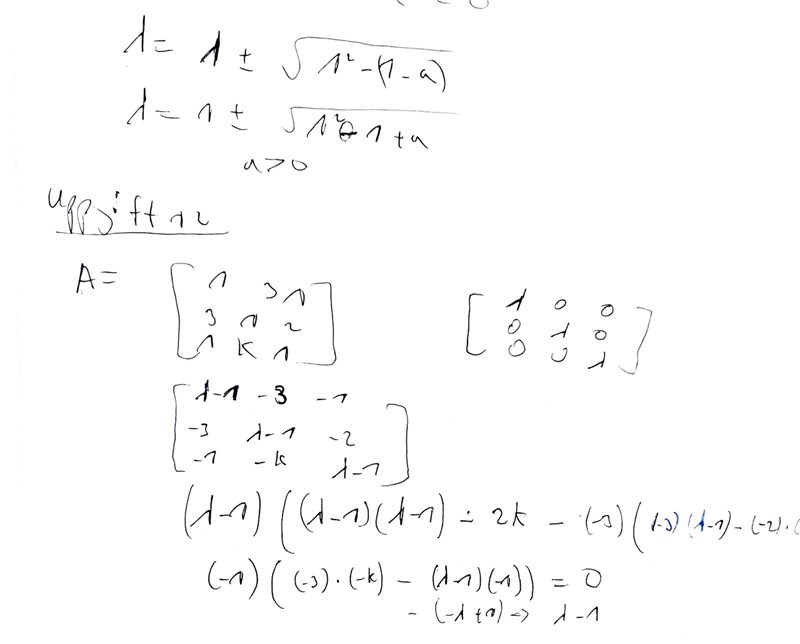 λ = 1 ± √(1² - (1 - a))
λ = 1 ± √(1² - 1 + a)
a > 0
Uppgift 12
A = [ 1 3 1
3 1 2
1 k 1 ]
[ λ 0 0
0 λ 0
0 0 λ ]
[ λ-1 -3 -1
-3 λ-1 -2
-1 -k λ-1 ]
(λ-1) ( (λ-1)(λ-1) - 2k - (-3) ( (-3)(λ-1) - (-2)·(
(-1) ( (-3)·(-k) - (λ-1)(-1) ) = 0
- (-λ+1) → λ-1